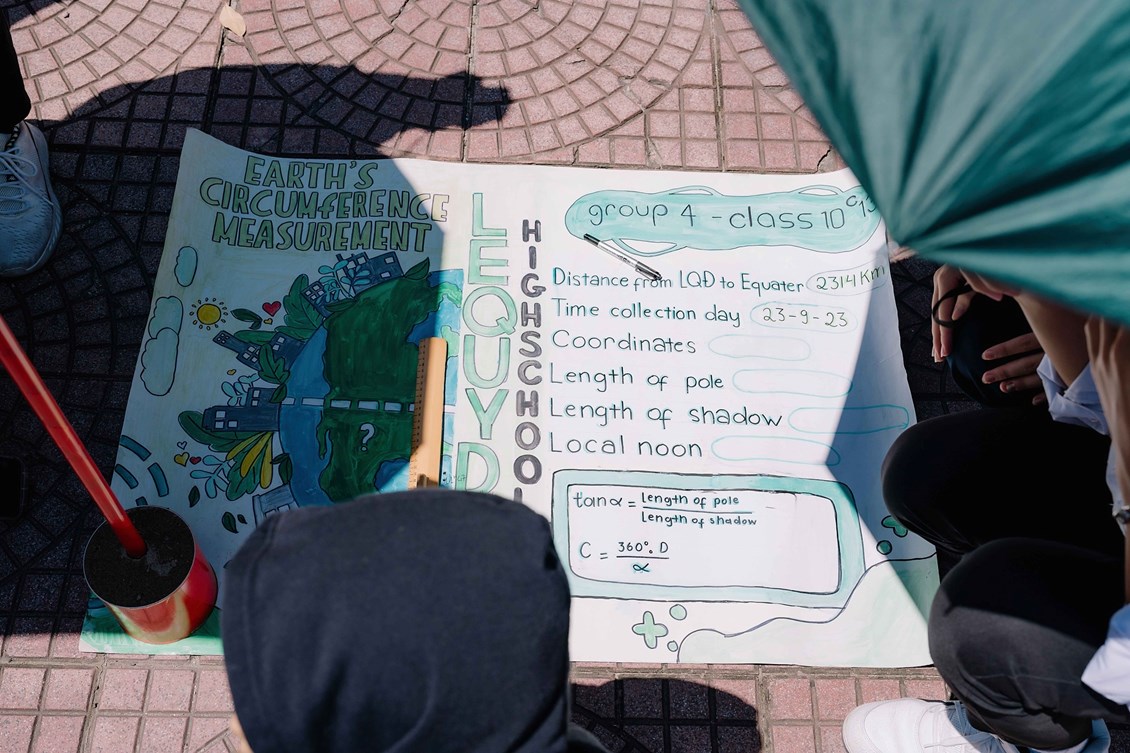 EARTH'S
CIRCUMFERENCE
MEASUREMENT
?
LEQUYD
HIGHSCHOOL
group 4 - class 10
Distance from LQĐ to Equater 2314 Km
Time collection day 23-9-23
Coordinates
Length of pole
Length of shadow
Local noon
tan α = Length of pole / Length of shadow
C = 360°. D / α